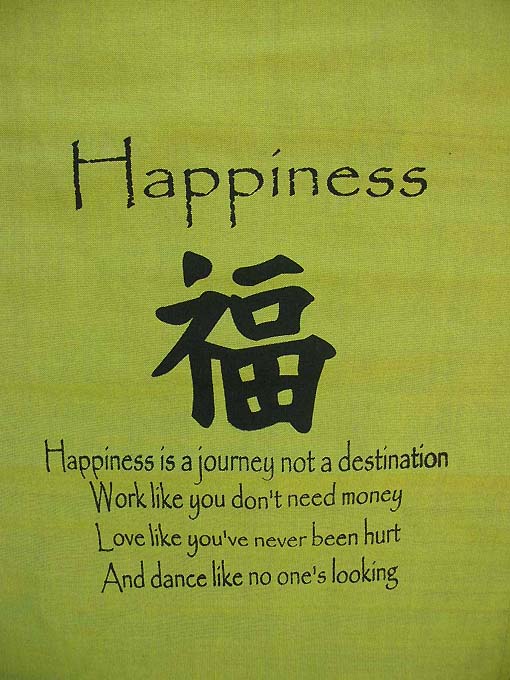 Happiness
福
Happiness is a journey not a destination
Work like you don't need money
Love like you've never been hurt
And dance like no one's looking